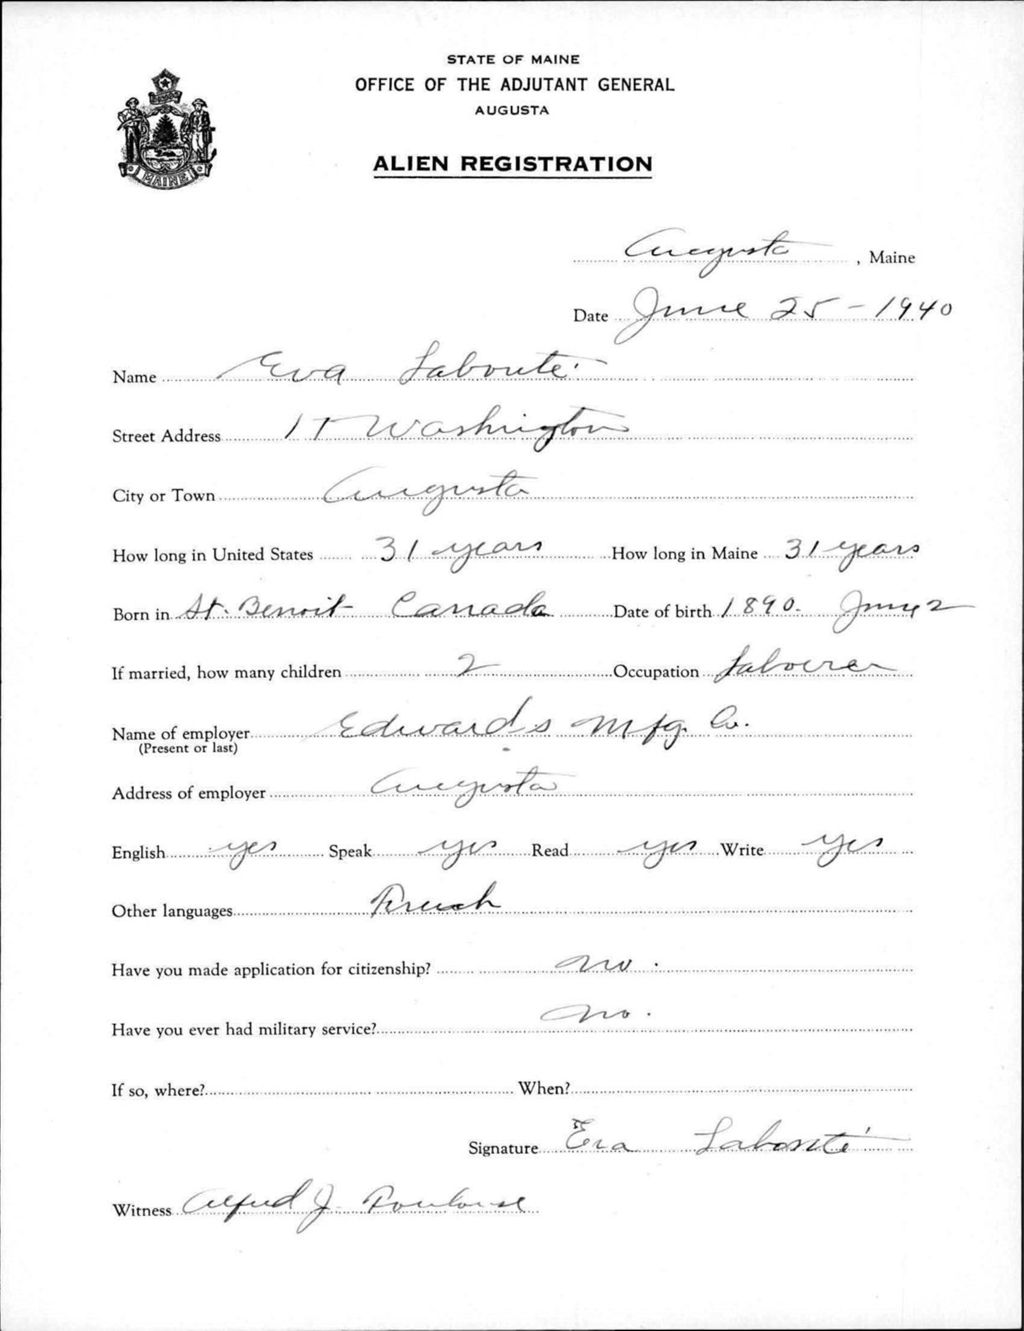 STATE OF MAINE
OFFICE OF THE ADJUTANT GENERAL
AUGUSTA
ALIEN REGISTRATION
MAINE
Augusta, Maine
Date June 25 - 1940
Name Eva Labonté
Street Address 17 Washington
City or Town Augusta
How long in United States 31 years How long in Maine 31 years
Born in St. Benoit Canada Date of birth 1890. 2
If married, how many children 2 Occupation Laborer
Name of employer Edwards Mfg. Co.
(Present or last)
Address of employer Augusta
English yes Speak yes Read yes Write yes
Other languages French
Have you made application for citizenship? no.
Have you ever had military service? no.
If so, where? When?
Signature Eva Labonté
Witness Alfred J.